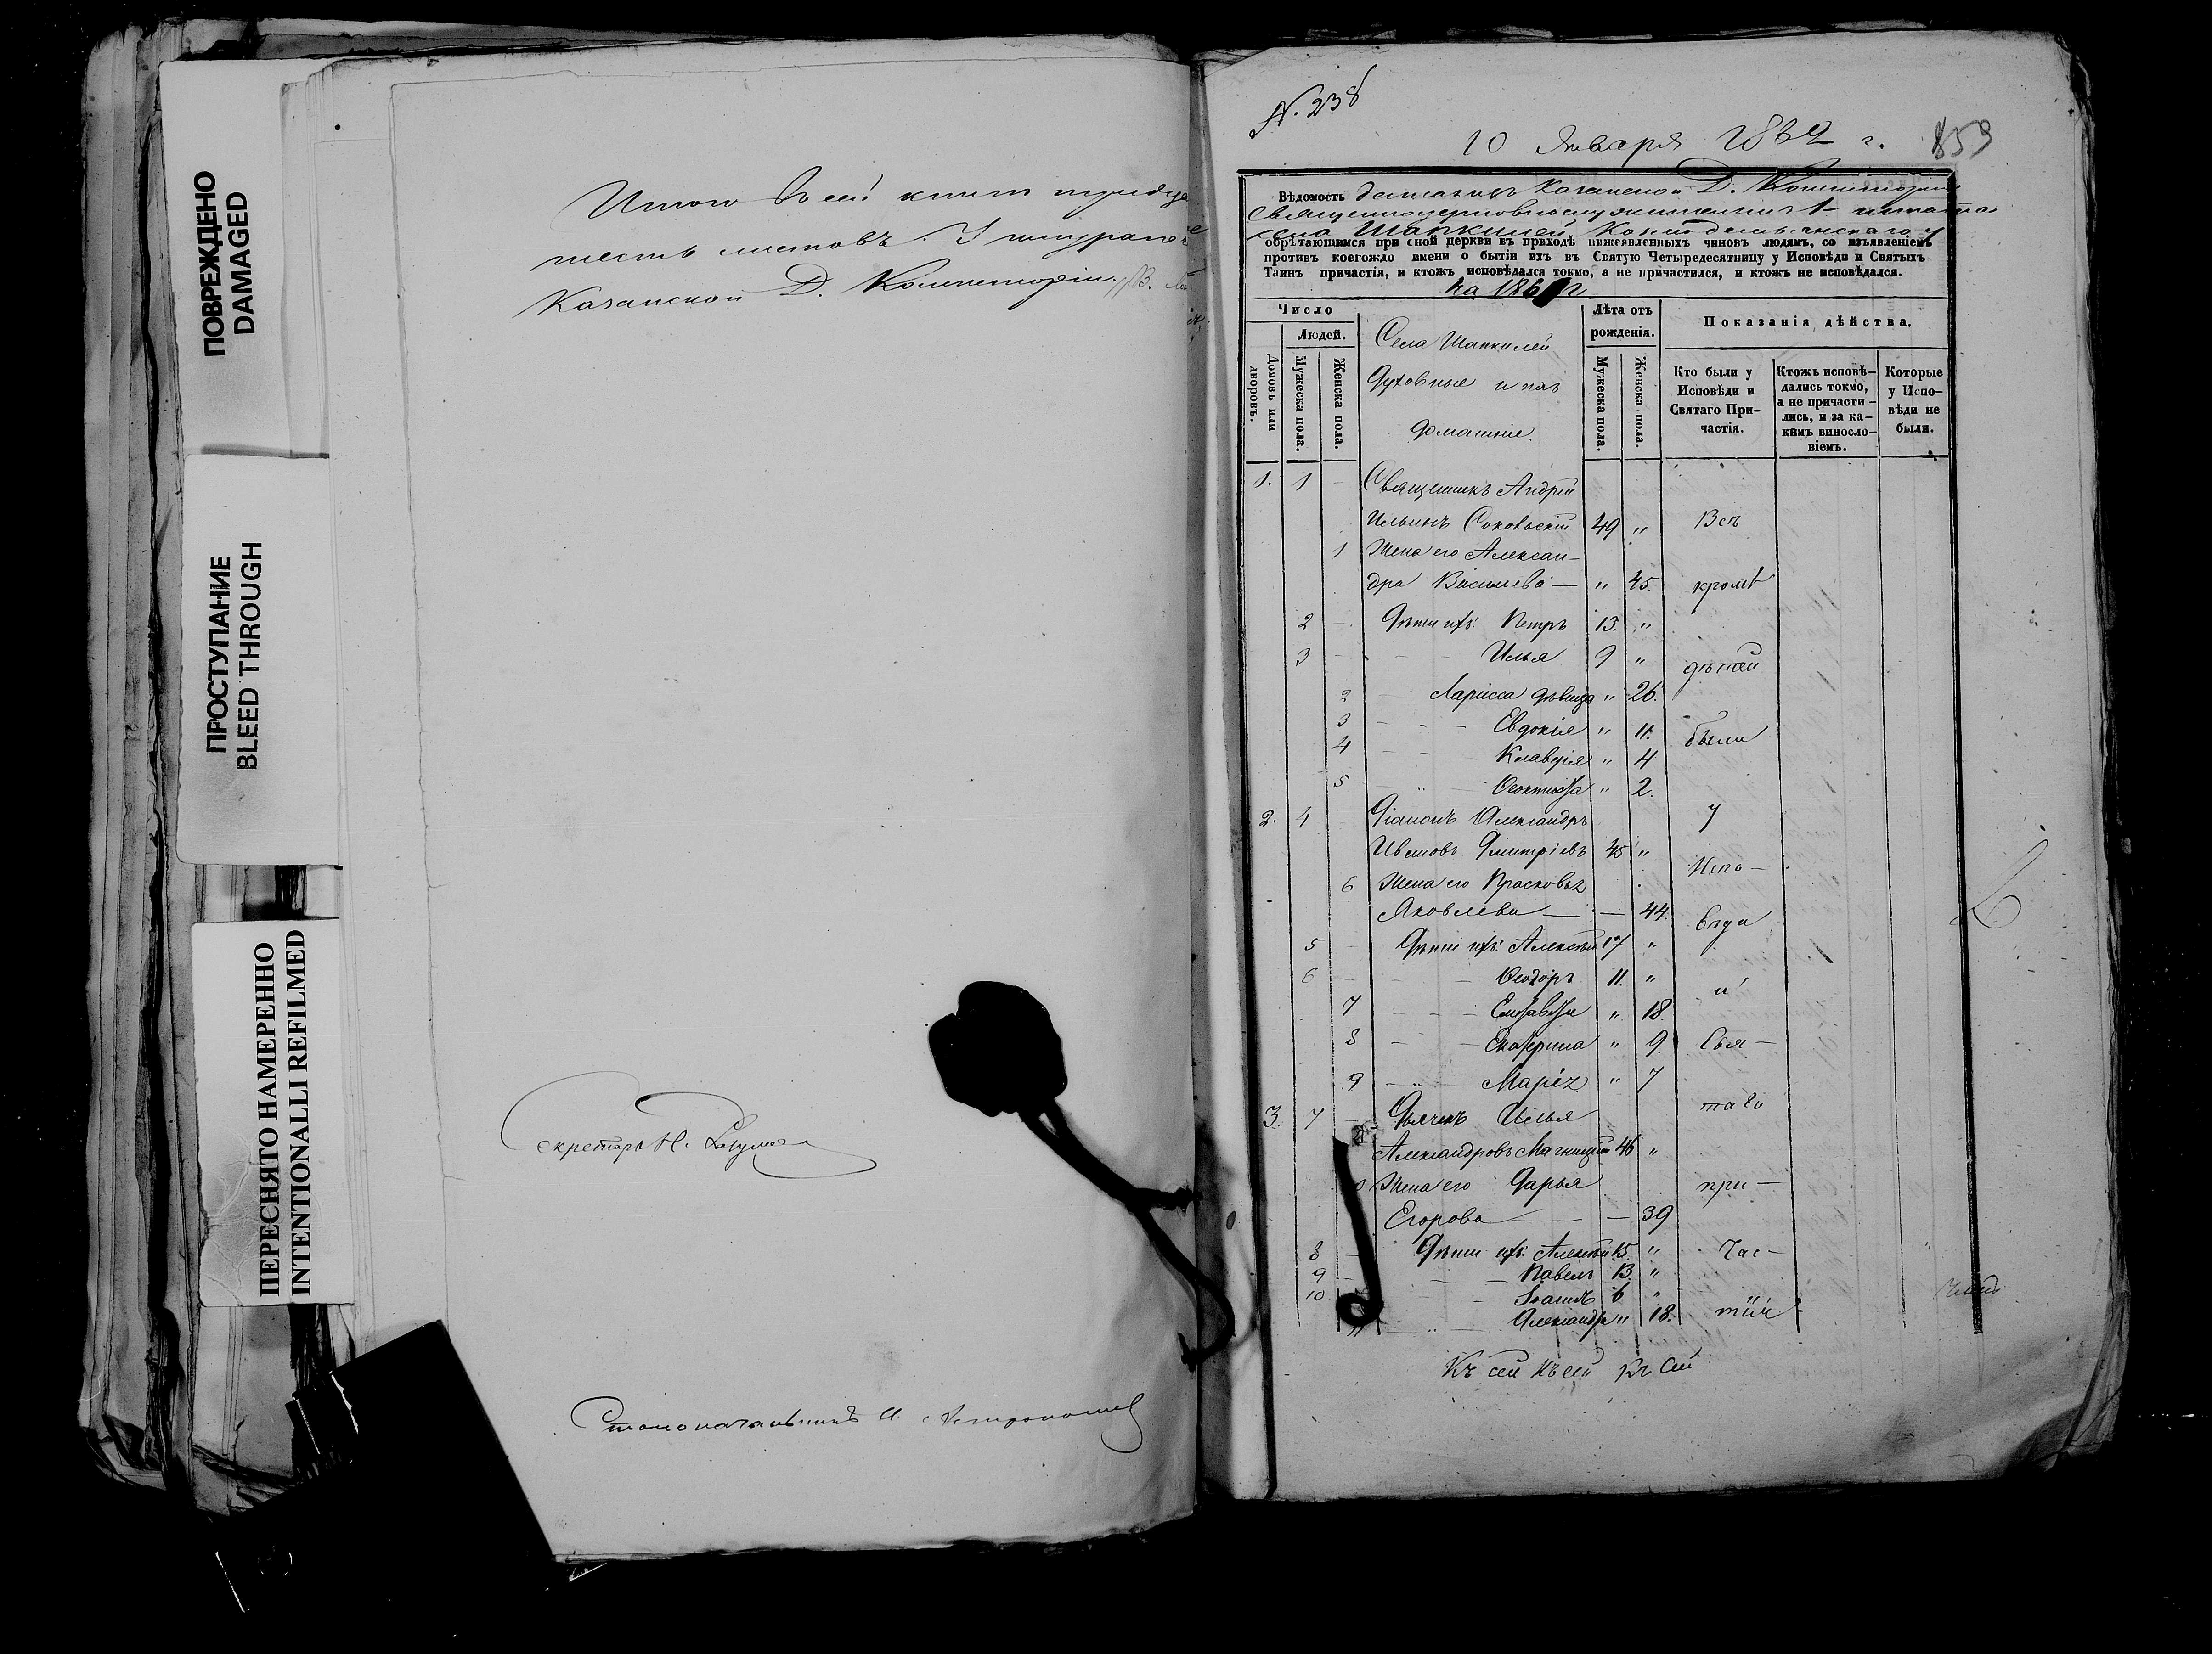 ПОВРЕЖДЕНО
DAMAGED
ПРОСТУПАНИЕ
BLEED THROUGH
ПЕРЕСНЯТО НАМЕРЕННО
INTENTIONALLI REFILMED
Итого въ сей книгѣ тридца
шесть листовъ.
Казанской Д. Консисторіи.
Секретарь Н.
Столоначальникъ
N. 238
10 Января 1862 г.
859
Вѣдомость данная изъ Казанской Д. Консисторіи
Священноцерковнослужителямъ
села Шапкилей Козмодемьянскаго у
обрѣтающимся при оной церкви въ приходѣ нижеявленныхъ чиновъ людямъ, со изъявленіемъ
противъ коегождо имени о бытіи ихъ въ Святую Четыредесятницу у Исповѣди и Святыхъ
Таинъ причастія, и ктожъ исповѣдался токмо, а не причастился, и ктожъ не исповѣдался.
на 186
Число
Людей.
Домовъ или дворовъ.
Мужеска пола.
Женска пола.
Села Шапкилей
Духовные и ихъ
домашніе.
Лѣта отъ рожденія.
Мужеска пола.
Женска пола.
Показанія дѣйства.
Кто были у Исповѣди и Святаго При-
частія.
Ктожъ исповѣ-
дались токмо,
а не причасти-
лись, и за ка-
кимъ винносло-
віемъ.
Которые
у Испо-
вѣди не
были.
1. 1 Священникъ Андрей
Ильинъ Соковскій 49 " Всѣ
1 Жена его Алексан-
дра Васильева — " 45. кромѣ
2 Дѣти ихъ: Петръ 13. "
3 Илья 9 " дѣтей
2 Ларисса дѣвица " 26.
3 Евдокія " 11. были
4 Клавдія " 4
5 Феоктиста " 2.
2. 4 Діаконъ Александръ у
Ивановъ Дмитріевъ 45 "
Испо-
6 Жена его Прасковья
Яковлева — — 44. вѣди
5 Дѣти ихъ: Алексѣй 17 "
6 Феодоръ 11. " и
7 Елизавета " 18.
8 Екатерина " 9. Свя-
9 Марія " 7
3. 7 Дьячекъ Илья таго
Александровъ Магницкій 46 "
Жена его Дарья при-
Егорова — — 39
8 Дѣти ихъ: Алексѣй 15. " час-
9 Павелъ 13. "
10 Іоаннъ 6 "
Александра " 18. тія
Къ сей къ сей къ сей